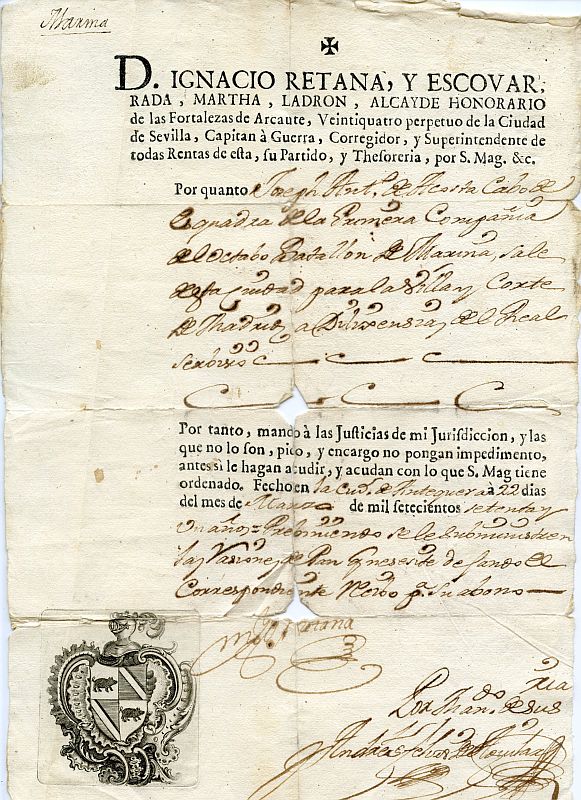 Marina
D. IGNACIO RETANA, Y ESCOVAR,
RADA, MARTHA, LADRON, ALCAYDE HONORARIO
de las Fortalezas de Arcaute, Veintiquatro perpetuo de la Ciudad
de Sevilla, Capitan à Guerra, Corregidor, y Superintendente de
todas Rentas de esta, su Partido, y Thesoreria, por S. Mag. &c.
Por quanto Joseph Ant.º de Acosta Cabo de
esquadra de la Primera Compañia
del octabo Batallon de Marina, sale
de esta Ciudad para la Villa y Corte
de Madrid, a Dilixensias del Real
serbisio
Por tanto, mando à las Justicias de mi Jurisdiccion, y las
que no lo son, pido, y encargo no pongan impedimento,
antes sì le hagan acudir, y acudan con lo que S. Mag tiene
ordenado. Fecho en la Ciud. de Antequera à 22 dias
del mes de Marzo de mil setecientos setenta y
un años = Prebiniendo se le subministren
las Rasiones de Pan q nesesite dejando el
Correspondiente Resibo p.ª su abono
Retana
Por Man.do de su s.ria
Andres